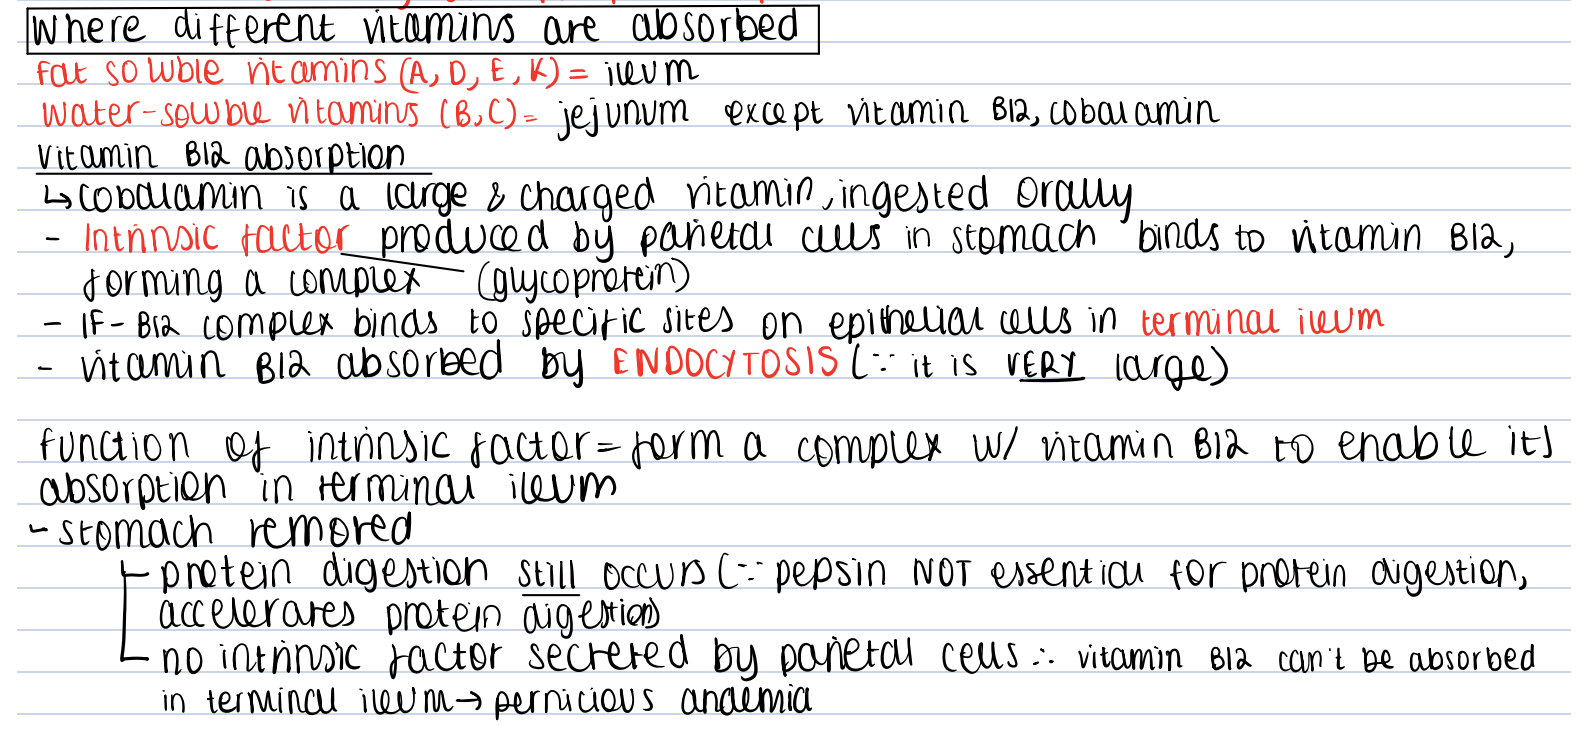 Where different vitamins are absorbed
Fat soluble vitamins (A, D, E, K) = ileum
Water-soluble vitamins (B, C) = jejunum except vitamin B12, cobalamin
Vitamin B12 absorption
↳ cobalamin is a large & charged vitamin, ingested orally
- Intrinsic factor produced by parietal cells in stomach binds to vitamin B12,
forming a complex (glycoprotein)
- IF-B12 complex binds to specific sites on epithelial cells in terminal ileum
- vitamin B12 absorbed by ENDOCYTOSIS (∵ it is VERY large)
function of intrinsic factor = form a complex w/ vitamin B12 to enable its
absorption in terminal ileum
- stomach removed
- protein digestion still occurs (∵ pepsin NOT essential for protein digestion,
accelerates protein digestion)
- no intrinsic factor secreted by parietal cells ∴ vitamin B12 can't be absorbed
in terminal ileum → pernicious anaemia